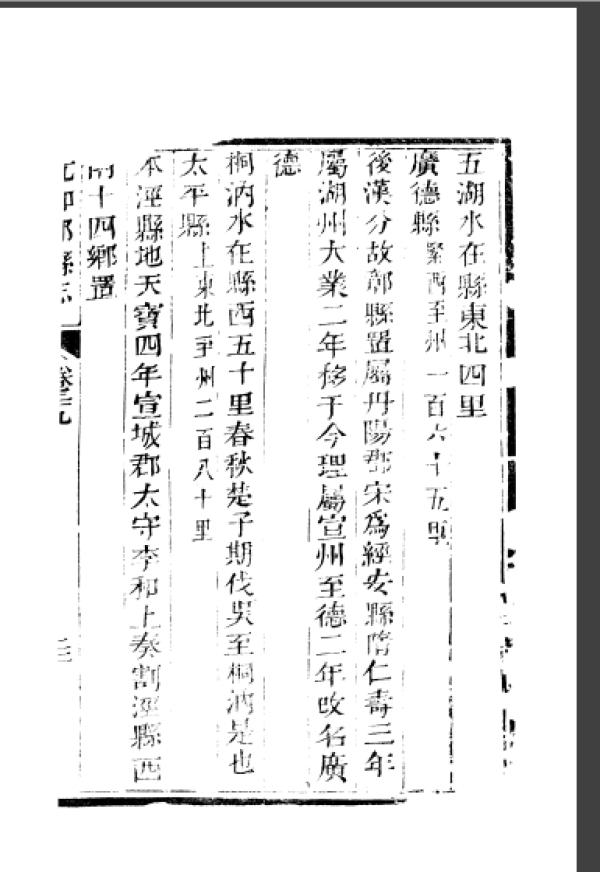 五湖水在縣東北四里
廣德縣緊西至州一百六十五里
後漢分故鄣縣置屬丹陽郡宋爲綏安縣隋仁壽三年
屬湖州大業二年移于今理屬宣州至德二年改名廣
德
桐汭水在縣西五十里春秋楚子期伐吳至桐汭是也
太平縣上東北至州二百八十里
本涇縣地天寶四年宣城郡太守李和上奏割涇縣西
南十四鄉置
元和郡縣志 卷